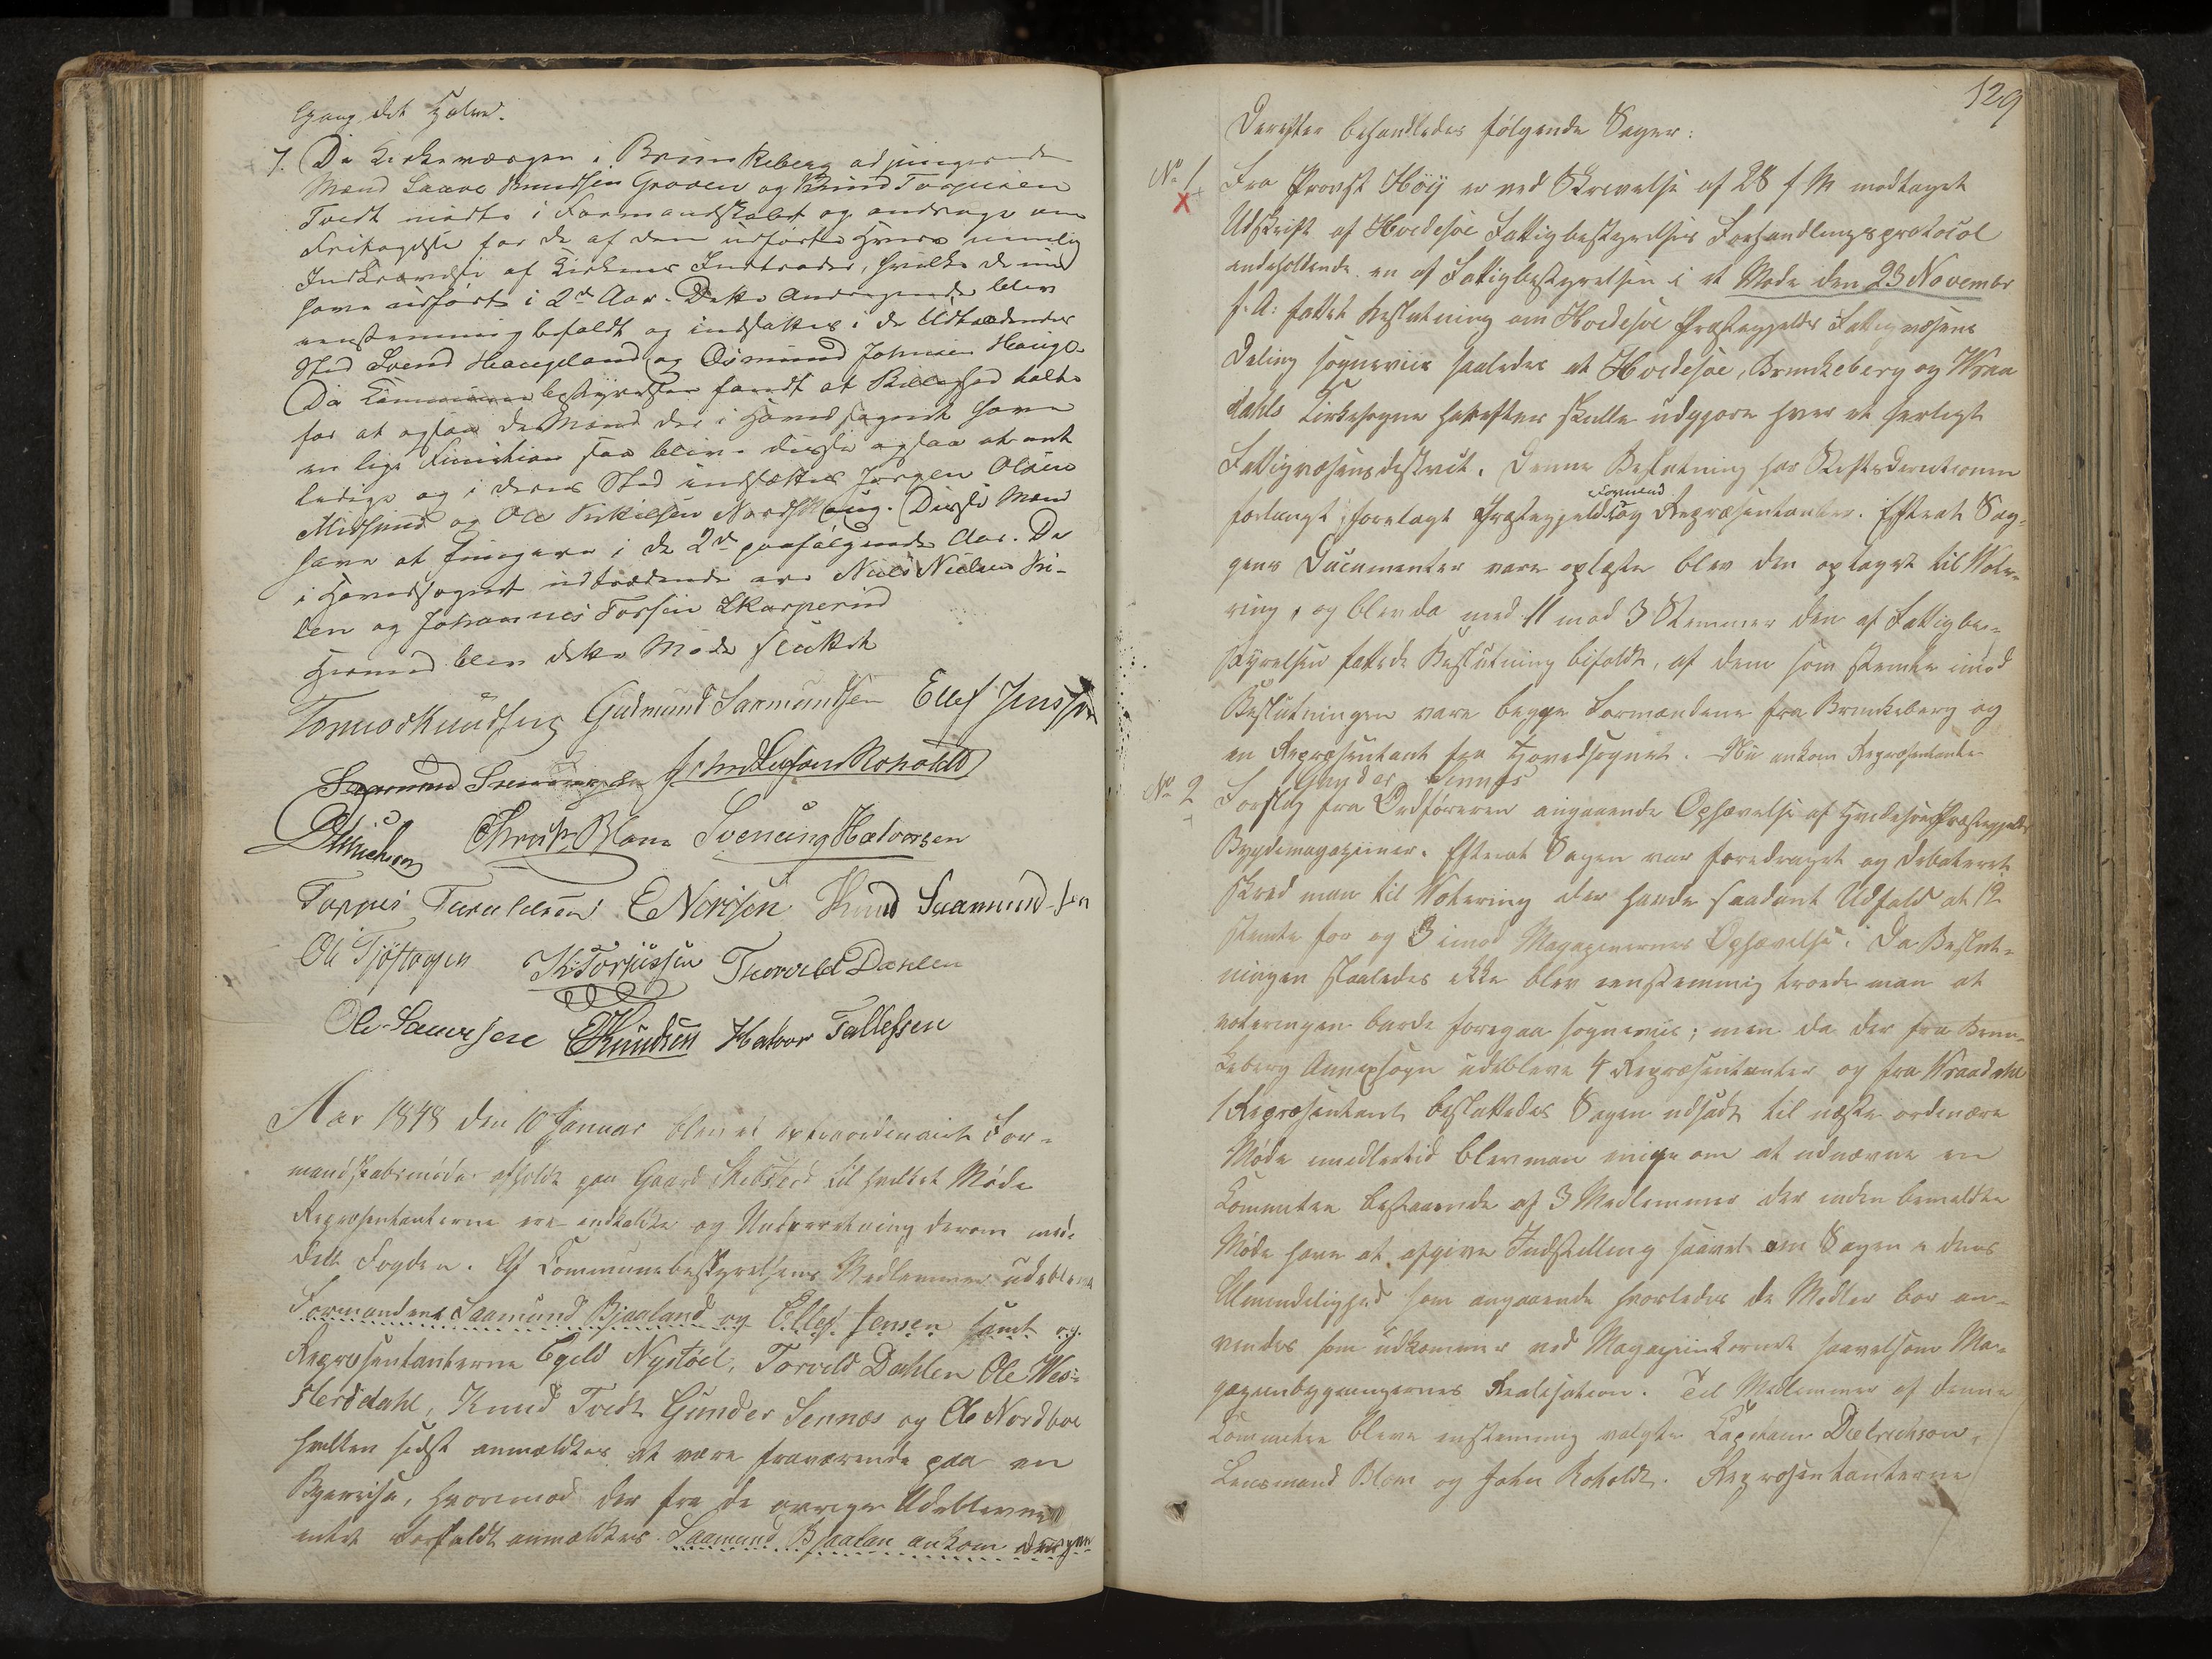 Gang det
7. Da Kirkeværgen i Brunkeberg adjungerende
Mænd Saave Knudsen Grøven og Knud Torjusen
Tvedt mødte i Formandskabet og androge om
Fritagelse for de af dem udførte Hverv nemlig
Indkrævelse af Kirkens Indtægter, hvilke de nu
have udført i 2de Aar. Dette Andragende blev
eenstemmig bifaldt og indsattes i de Udtrædendes
Sted Svend Haugeland og Osmund Johnsen Hauge
Da Communebestyrelsen fandt at Billighed talte
for at ogsaa de Mænd der i Hovedsognet have
en lige Function saa blive disse ogsaa at ent
ledige og i deres Sted indsættes Jørgen Olsen
Midsund og Ole Kirkilsen Nordskoug. Disse Mænd
have at fungere i de 2de paafølgende Aar. De
i Hovedsognet udtrædende ere Niels Nielsen Vri-
len og Johannes Torsen Skarperud
Hermed blev dette Møde sluttet
Tormod Knudsen Gudmund Sarmundsen Ellef Jenssen
Saamund John Leifsen Roholdt
Dietrichson Christ. Blom Svenung Halvorsen
Torjus Taraldsen E Norisen Knud Saamundsen
Ole Tjøstogsen K: Torjussen Thorveld Dahlen
Ole Saavesen EKnudsen Halvor Tallefsen
Aar 1848 den 10 Januar blev et extraordinairt For-
mandskabsmøde afholdt paa Gaard til hvilket Møde
Repræsentanterne ere indkaldte og Underretning derom med-
delt Fogden. Af Communebestyrelsens Medlemmer udebleve
Formændene Saamund Bjaaland og Ellef Jensen samt og
Repræsentanterne Eyeld Nystøel, Torveld Dahlen Ole Wes-
sterdahl, Knud Tvedt Gunder Sennæs og Ole Nordboe
hvilken sidst anmeldtes at være fraværende paa en
Byereise, hvorimod der fra de øvrige Udeblevne
intet Forfald anmeldtes. Saamund Bjaalan ankom
129
Derefter behandledes følgende Sager:
No 1 Fra Provst Høÿ er ved Skrivelse af 28 f M modtaget
X Udskrift af Hvedesøe Fattigbestyrelses Forhandlingsprotocol
indeholdende en af Fattigbestyrelsen i et Møde den 23 Novembr
f. A: fattet Beslutning om Hvedesøe Præstegjelds Fattigvæsens
Deling sogneviis saaledes at Hvedesøe, Brunkeberg og Wraa
dahls Kirkesogne herefter skulle udgjøre hver et særligt
Fattigvæsensdistrict. Denne Beslutning har Stiftsdirectionen
Formænd
forlangt forelagt Præstegjeldets og Repræsentanter. Efterat Sa-
gens Documenter vare oplæste blev den optaget til Vote-
ring, og blev da med 11 mod 3 Stemmer den af Fattigbe-
styrelsen fattede Beslutning bifaldt, af dem som stemte imod
Beslutningen vare begge Formændene fra Brunkeberg og
en Repræsentant fra Hovedsognet. Nu ankom Repræsentanten
Gunder Sennæs
No 2 Forslag fra Ordføreren angaaende Ophævelse af Hvedesøe Præstegjelds
Bygdemagaziner. Efterat Sagen var foredraget og debateret
skred man til Votering der havde saadant Udfald at 12
stemte for og 3 imod Magazinernes Ophævelse. Da Beslut-
ningen saaledes ikke blev eenstemmig troede man at
voteringen burde foregaa sogneviis; men da der fra Brun-
keberg Annexsogn udebleve 4 Repræsentanter og fra Wraadahl
1 Repræsentant besluttedes Sagen udsadt til næste ordinære
Møde imidlertid blev man enige om at udnævne en
Committee bestaaende af 3 Medlemmer der inden bemeldte
Møde have at afgive Indstilling saavel om Sagen i dens
Almindelighed som angaaende hvorledes de Midler bør an-
vendes som indkommer ved Magazinkornet saavelsom Ma-
gazinbygningernes Realisation. Til Medlemmer af denne
Committee bleve enstemmig valgte Capitain Dietrichson,
Lensmand Blom og John Roholdt. Repræsentanterne